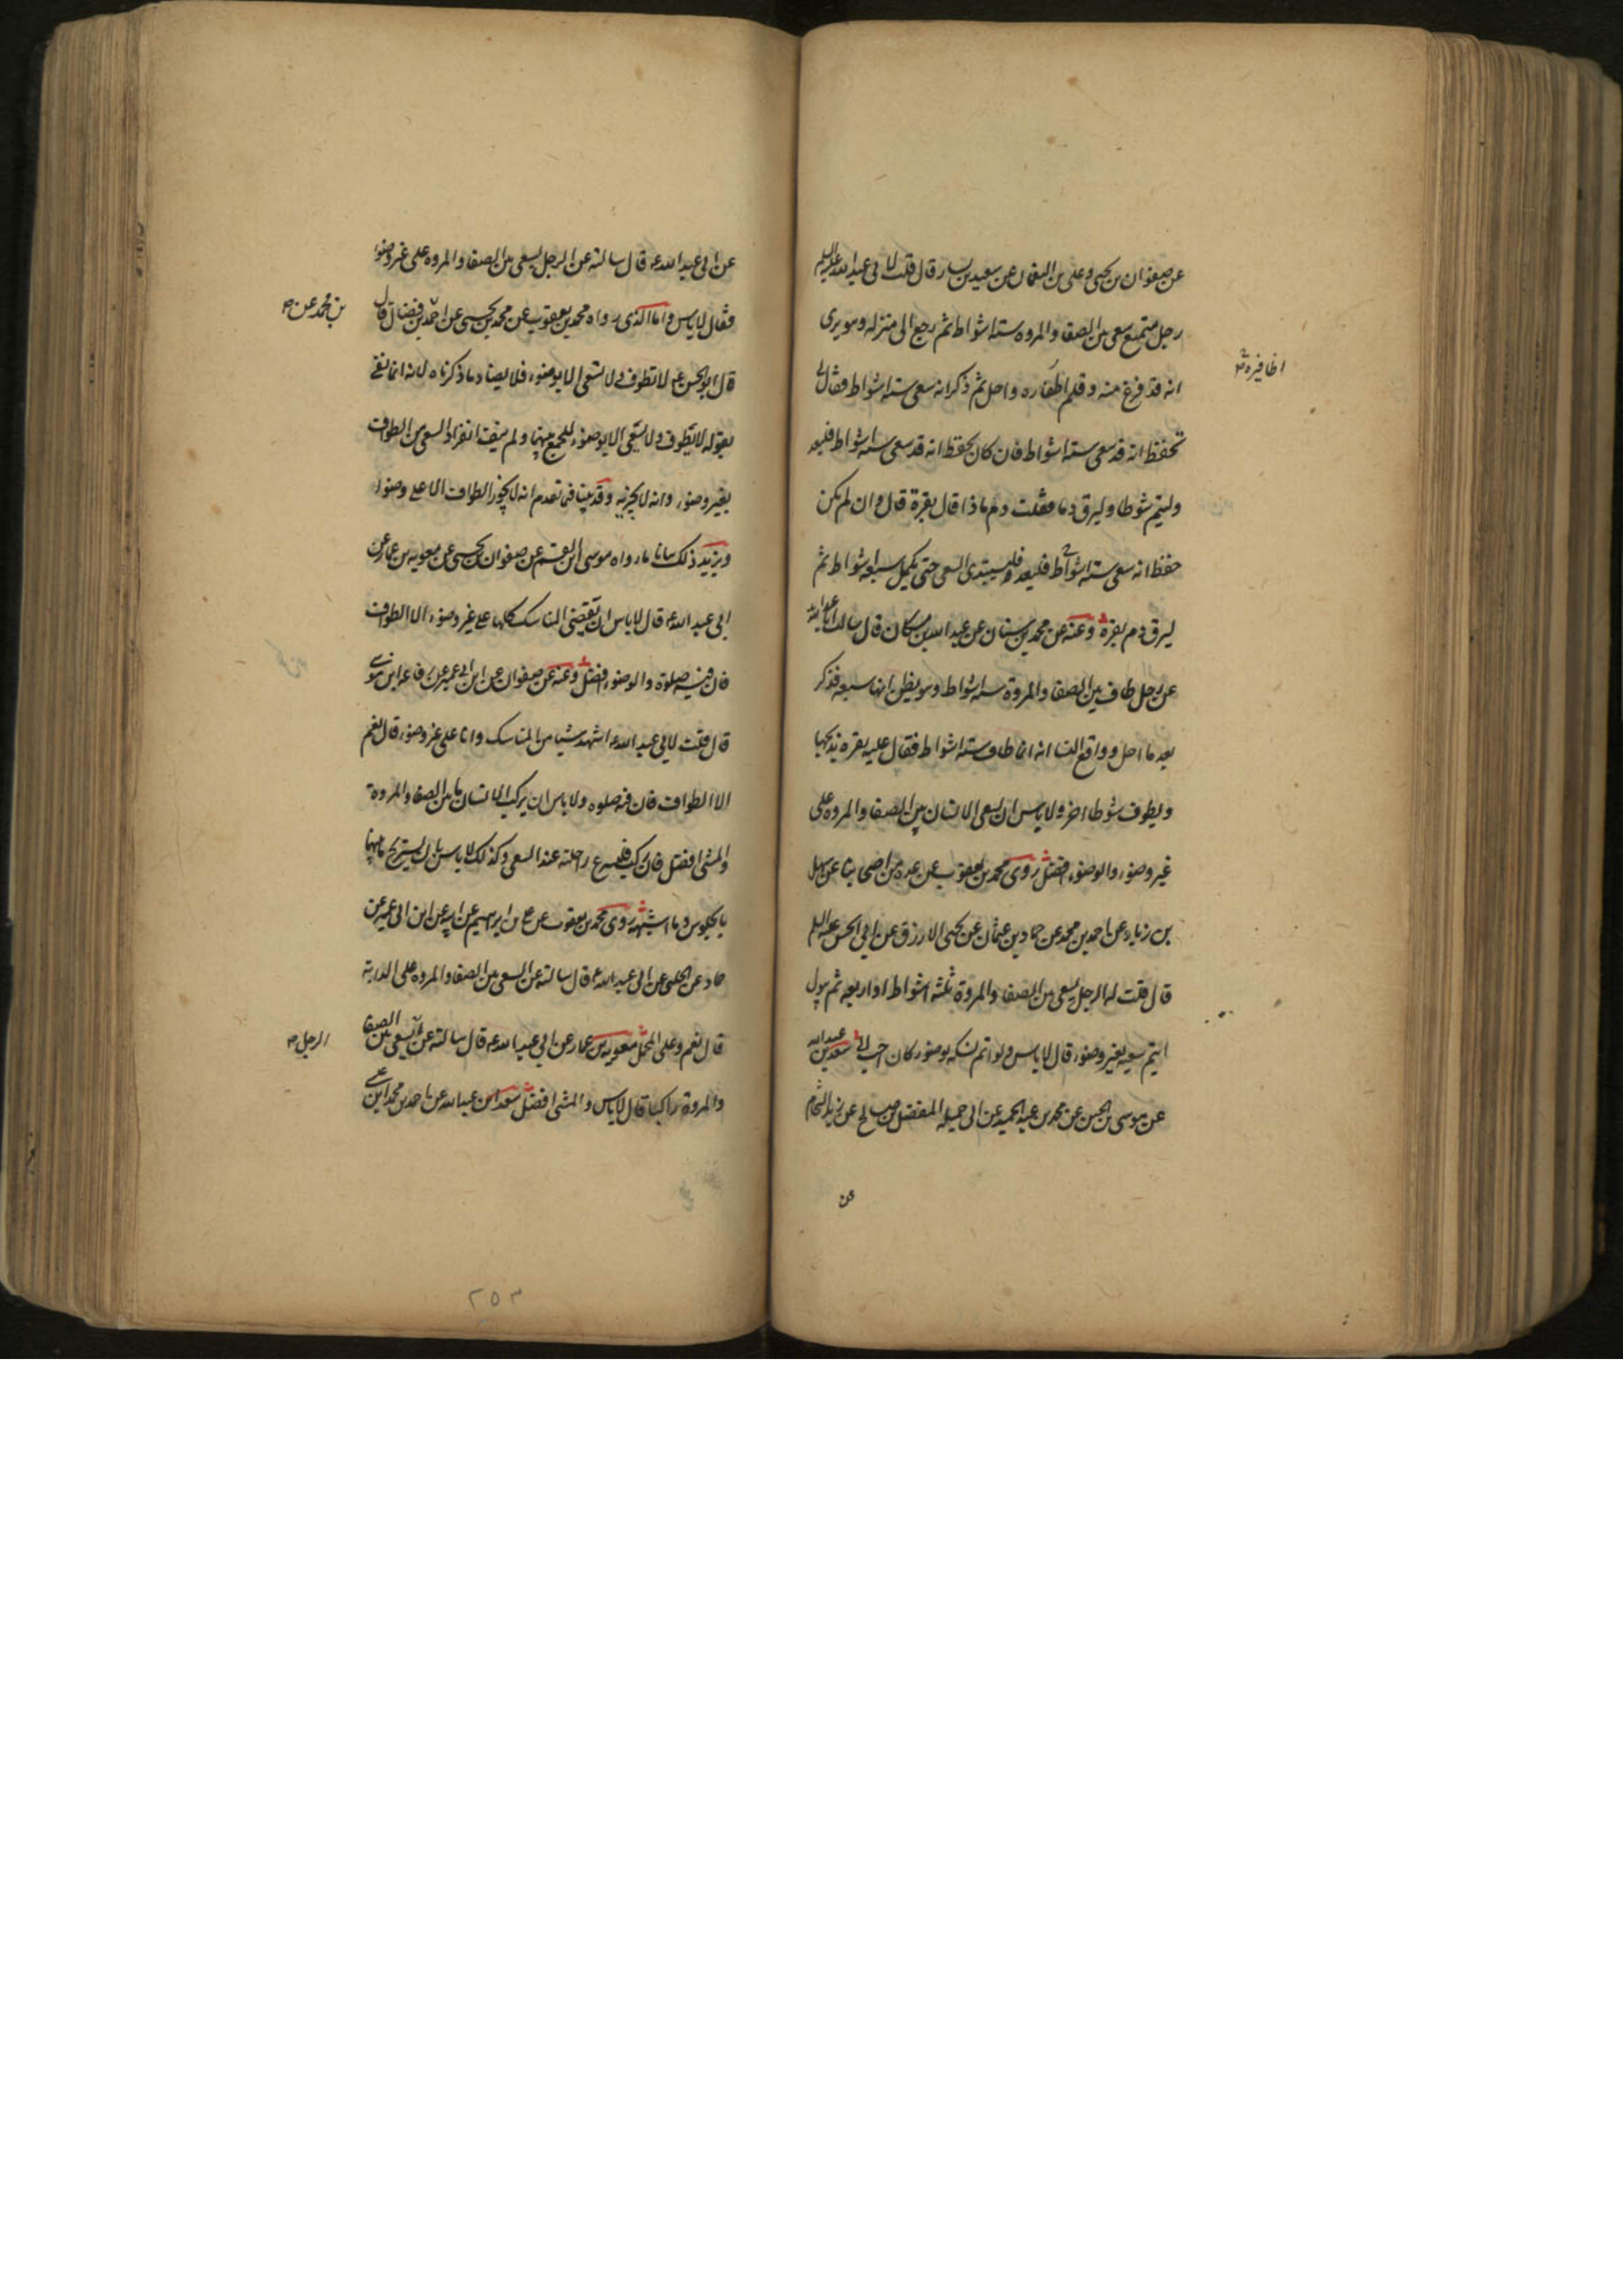 عن صفوان بن يحيى وعلى بن النعمان عن سعيد بن يسار قال قلت لابي عبد الله عليه السلم
رجل متمتع سعى بين الصفا والمروه سته اشواط ثم رجع الى منزله وهو يرى
انه قد فرغ منه وقلم اظفاره واحل ثم ذكر انه سعى سته اشواط فقال لي
اظافيره
تحفظ انه قد سعى سته اشواط فان كان يحفظ انه قد سعى سته اشواط فليعد
وليتم شوطا وليرق دما فقلت دم ماذا قال بقرة قال وان لم يكن
حفظ انه سعى سته اشواط فليعد فليبتدى السعى حتى يكمل سبعه اشواط ثم
ليرق دم بقرة وعنه عن محمد بن سنان عن عبد الله بن مسكان قال سالت ابا عبد الله
عن رجل طاف بين الصفا والمروة سته اشواط وهو يظن انها سبعه فذكر
بعد ما احل وواقع النسا انه انما طاف سته اشواط فقال عليه بقره يذبحها
ويطوف شوطا اخر ولا باس ان يسعى الانسان بين الصفا والمروه على
غير وضوء والوضوء افضل روى محمد بن يعقوب عن عده من اصحابنا عن سهل
بن زياد عن احمد بن محمد عن حماد بن عثمان عن يحيى الازرق عن ابي الحسن عليه السلم
قال قلت له الرجل يسعى بين الصفا والمروة ثلثه اشواط او اربعه ثم يبول
ايتم سعيه بغير وضوء قال لا باس ولو اتم نسكه بوضوء كان احب الي سعد بن عبد الله
عن موسى بن الحسن عن محمد بن عبد الحميد عن ابي جميله المفضل بن صالح عن زيد الشحام
عن
عن ابي عبد الله ع قال سالته عن الرجل يسعى بين الصفا والمروه على غير وضوء
فقال لا باس واما الذى رواه محمد بن يعقوب عن محمد بن يحيى عن احمد بن فضال قال
بن محمد عن
قال ابو الحسن ع لا تطوف ولا تسعى الا بوضوء فلا يضاد ما ذكرناه لانه انما نفى
بقوله لا تطوف ولا تسعى الا بوضوء الجمع بينهما ولم ينف انفراد السعى من الطواف
بغير وضوء وانه لا يجزيه وقد بينا فيما تقدم انه لا يجوز الطواف الا على وضوء
ويزيد ذلك بيانا ما رواه موسى ابن القسم عن صفوان بن يحيى عن معويه بن عمار عن
ابي عبد الله ع قال لا باس ان تقضى المناسك كلها على غير وضوء الا الطواف
فان فيه صلوة والوضوء افضل وعنه عن صفوان عن ابن ابي عمير عن رفاعه ابن موسى
قال قلت لابي عبد الله ع اشهد شيا من المناسك وانا على غير وضوء قال نعم
الا الطواف فان فيه صلوه ولا باس ان يركب الانسان ما بين الصفا والمروة
والمشى افضل فان ركب فليسرع راحلته عند السعى وكذلك لا باس بان يستريح ما بينهما
بالجلوس وما اشبهه روى محمد بن يعقوب عن على بن ابرهيم عن ابيه عن ابن ابي عمير عن
حماد عن الحلبى عن ابي عبد الله ع قال سالته عن السعى بين الصفا والمروه على الدابة
قال نعم وعلى المحمل معويه بن عمار عن ابي عبد الله ع قال سالته عن يسعى بين الصفا
الرجل
والمروة راكبا قال لا باس والمشى افضل سعد بن عبد الله عن احمد بن محمد ابن عيسى
٢٥٣